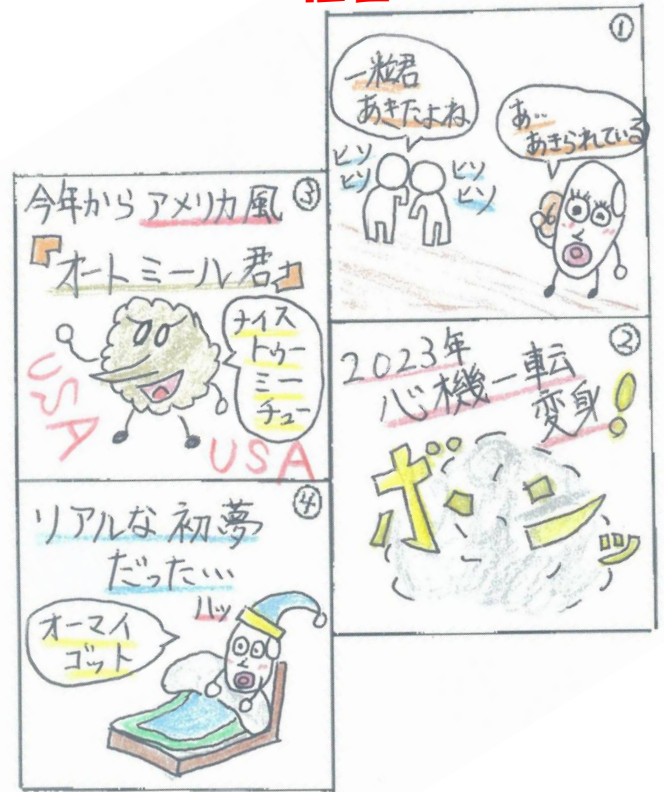 ①
一粒君
あきたよね
ヒソ
ヒソ
ヒソ
ヒソ
あ…
あきられている
②
2023年
心機一転
変身!
ボンッ
③
今年からアメリカ風
『オートミール君』
ナイス
トゥー
ミー
チュー
USA
USA
④
リアルな初夢
だった…
ハッ
オーマイ
ゴット